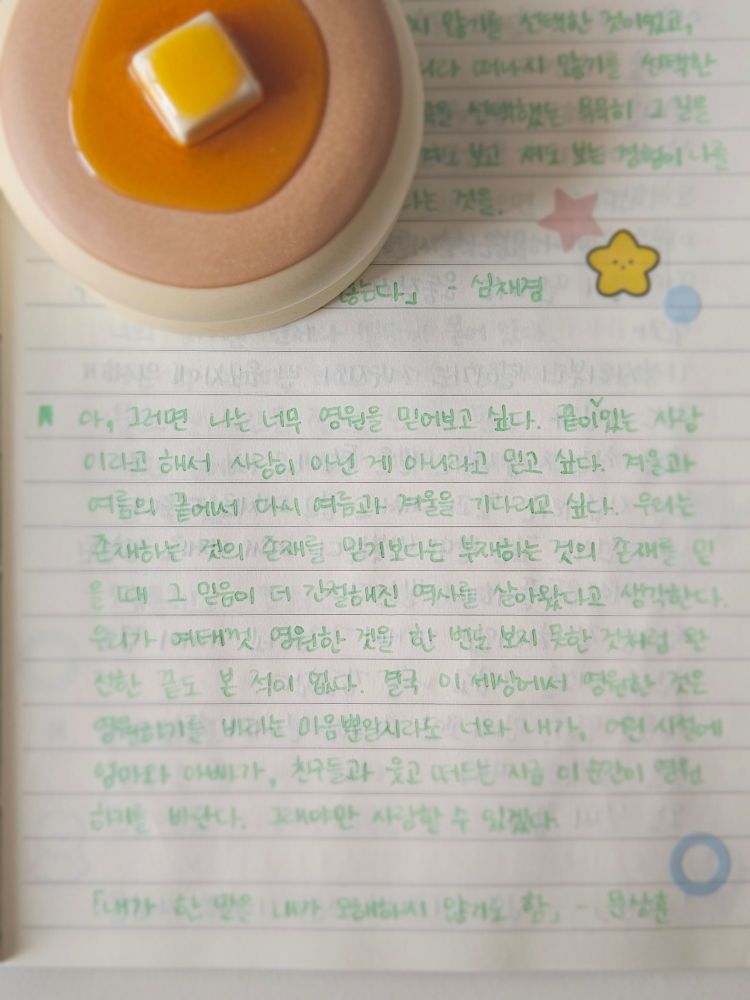 지 않기를 선택한 것이었고,
떠나지 않기를 선택한
선택했는 묵묵히 그 길을
져도 보고 져도 보는 경험이 나를
다는 것을.
않는다」 - 심채경
아, 그러면 나는 너무 영원을 믿어보고 싶다. 끝이 있는 사랑
이라고 해서 사랑이 아닌 게 아니라고 믿고 싶다. 겨울과
여름의 끝에서 다시 여름과 겨울을 기다리고 싶다. 우리는
존재하는 것의 존재를 믿기보다는 부재하는 것의 존재를 믿
을 때 그 믿음이 더 간절해진 역사를 살아왔다고 생각한다.
우리가 여태껏 영원한 것을 한 번도 보지 못한 것처럼 완
전한 끝도 본 적이 없다. 결국 이 세상에서 영원한 것은
영원하기를 바라는 마음뿐일지라도 너와 내가, 어떤 시절에
엄마와 아빠가, 친구들과 웃고 떠드는 지금 이 순간이 영원
하기를 바란다. 그래야만 사랑할 수 있겠다.
「내가 한 말을 내가 오해하지 않기도 함」 - 문상훈